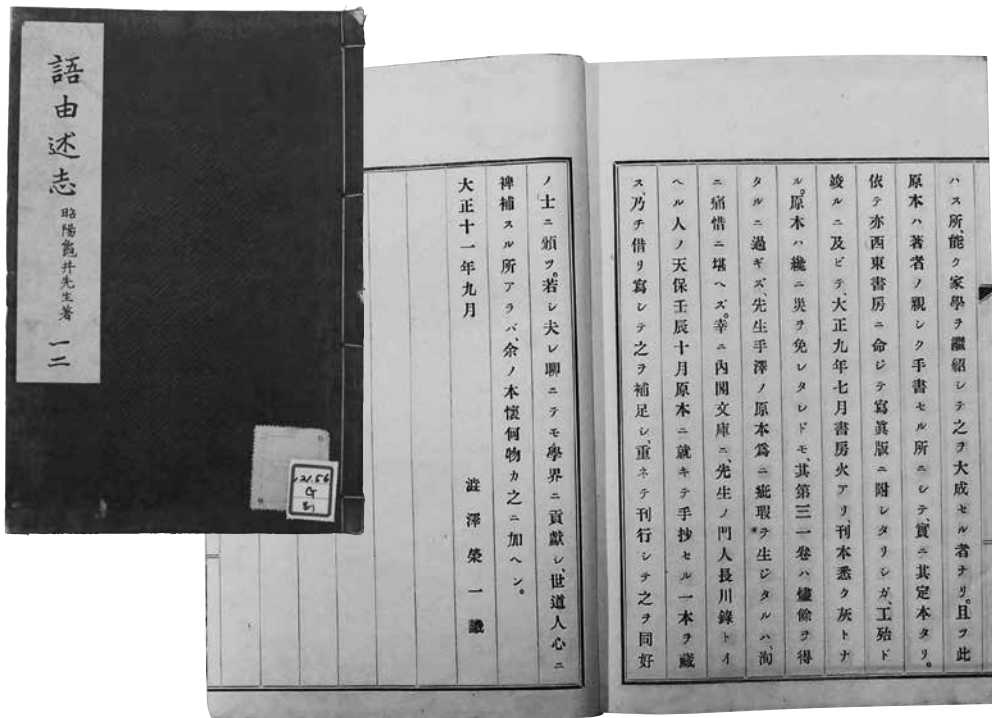 語由述志
昭陽龜井先生著
一二
ハス所、能ク家學ヲ繼紹シテ之ヲ大成セル者ナリ。且ツ此
原本ハ著者ノ親シク手書セル所ニシテ、實ニ其定本タリ。
依テ亦西東書房ニ命ジテ寫眞版ニ附シタリシガ、工殆ド
竣ルニ及ビテ、大正九年七月書房火アリ、刊本悉ク灰トナ
ル。原本ハ纔ニ災ヲ免レタレドモ、其第三一卷ハ燼餘ヲ得
タルニ過ギズ、先生手澤ノ原本爲ニ疵瑕ヲ生ジタルハ、洵
ニ痛惜ニ堪ヘズ。幸ニ內閣文庫ニ、先生ノ門人長川錄トイ
ヘル人ノ天保壬辰十月原本ニ就キテ手抄セル一本ヲ藏
ス、乃チ借リ寫シテ之ヲ補足シ、重ネテ刊行シテ之ヲ同好
ノ士ニ頒ツ。若シ夫レ聊ニテモ學界ニ貢獻シ、世道人心ニ
裨補スル所アラバ、余ノ本懷何物カ之ニ加ヘン。
大正十一年九月
澁澤榮一識